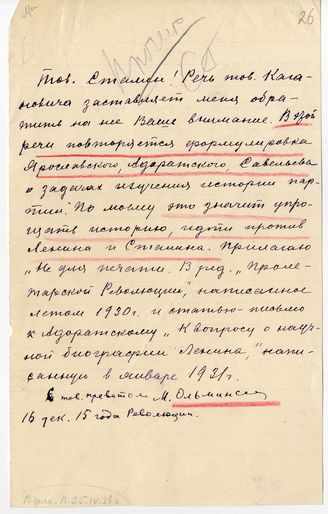 26
Тов. Сталин! Речь тов. Кага-
новича заставляет меня обра-
тить на нее Ваше внимание. В этой
речи повторяется формулировка
Ярославского, Адоратского, Савельева
о задачах изучения истории пар-
тии. По моему это значит упро-
щать историю, идти против
Ленина и Сталина. Прилагаю
"Не для печати. В ред. "Проле-
тарской Революции", написанное
летом 1930 г. и статью-письмо
к Адоратскому "К вопросу о науч-
ной биографии Ленина," напи-
санную в январе 1931 г.
С тов. приветом М. Ольминский
16 дек. 15 года Революции.